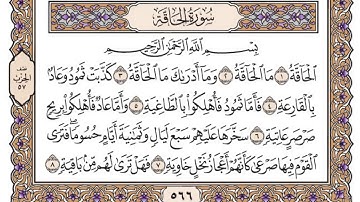 سُورَةُ الحَاقَّةِ
بِسْمِ اللَّهِ الرَّحْمَٰنِ الرَّحِيمِ
الْحَاقَّةُ ١ مَا الْحَاقَّةُ ٢ وَمَا أَدْرَىٰكَ مَا الْحَاقَّةُ ٣ كَذَّبَتْ ثَمُودُ وَعَادٌ
بِالْقَارِعَةِ ٤ فَأَمَّا ثَمُودُ فَأُهْلِكُوا بِالطَّاغِيَةِ ٥ وَأَمَّا عَادٌ فَأُهْلِكُوا بِرِيحٍ
صَرْصَرٍ عَاتِيَةٍ ٦ سَخَّرَهَا عَلَيْهِمْ سَبْعَ لَيَالٍ وَثَمَٰنِيَةَ أَيَّامٍ حُسُومًا فَتَرَى
الْقَوْمَ فِيهَا صَرْعَىٰ كَأَنَّهُمْ أَعْجَازُ نَخْلٍ خَاوِيَةٍ ٧ فَهَلْ تَرَىٰ لَهُم مِّن بَاقِيَةٍ ٨
٥٦٦
نصف
الحزب
٥٧